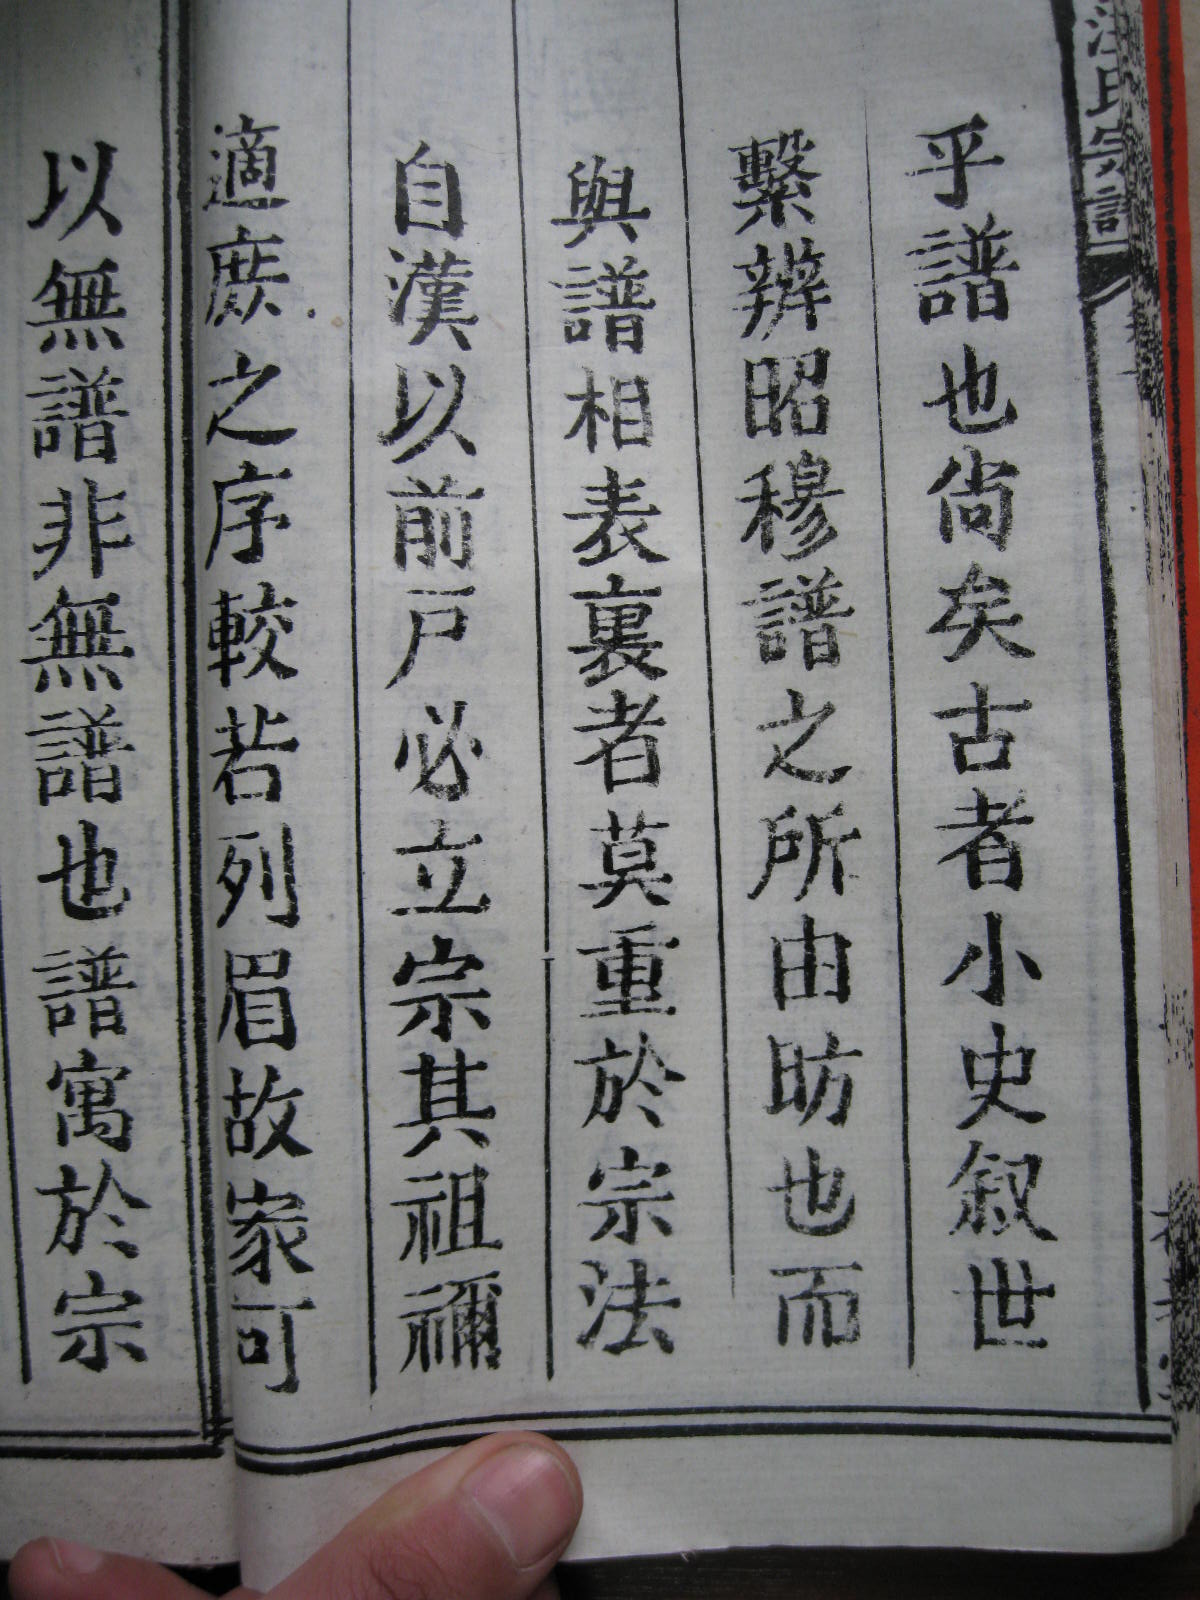 洪氏宗譜
乎譜也尙矣古者小史叙世
繫辨昭穆譜之所由昉也而
與譜相表裏者莫重於宗法
自漢以前戸必立宗其祖禰
適庶之序較若列眉故家可
以無譜非無譜也譜寓於宗